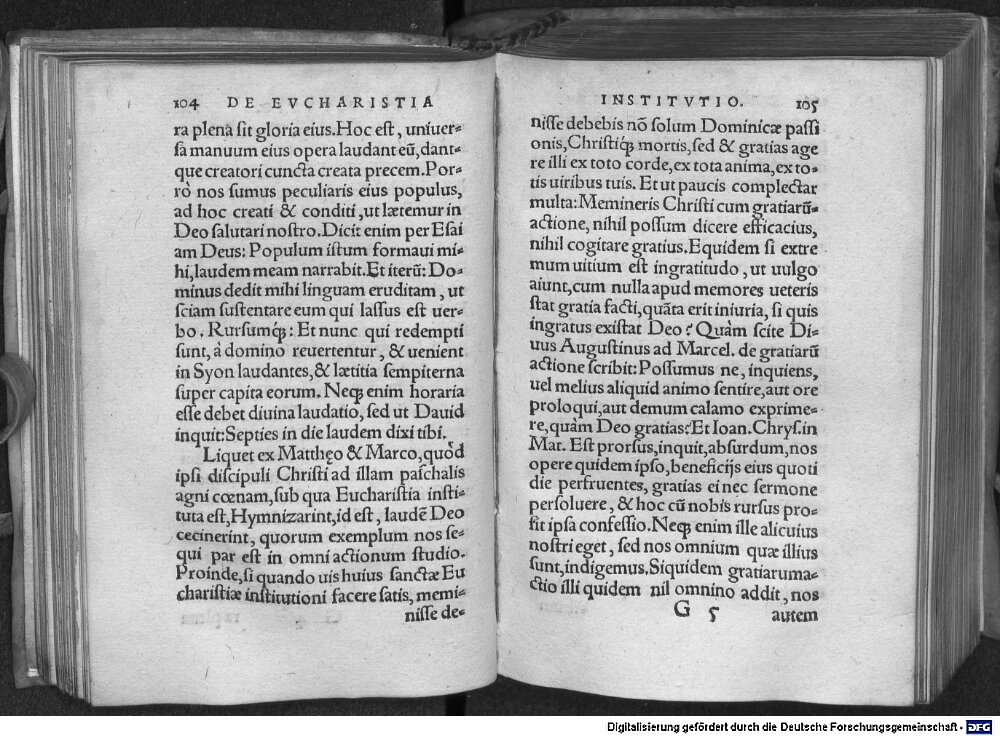 104 DE EVCHARISTIA
ra plena sit gloria eius. Hoc est, uniuer-
sa manuum eius opera laudant eũ, dant-
que creatori cuncta creata precem. Por-
rò nos sumus peculiaris eius populus,
ad hoc creati & conditi, ut lætemur in
Deo salutari nostro. Dicit enim per Esai
am Deus: Populum istum formaui mi-
hi, laudem meam narrabit. Et iterũ: Do-
minus dedit mihi linguam eruditam, ut
sciam sustentare eum qui lassus est uer-
bo. Rursumq́ꝫ: Et nunc qui redempti
sunt, à domino reuertentur, & uenient
in Syon laudantes, & lætitia sempiterna
super capita eorum. Neqꝫ enim horaria
esse debet diuina laudatio, sed ut Dauid
inquit: Septies in die laudem dixi tibi.
Liquet ex Matthęo & Marco, quòd
ipsi discipuli Christi ad illam paschalis
agni cœnam, sub qua Eucharistia insti-
tuta est, Hymnizarint, id est, laudẽ Deo
cecinerint, quorum exemplum nos se-
qui par est in omni actionum studio.
Proinde, si quando uis huius sanctæ Eu
charistiæ institutioni facere satis, memi-
nisse de-
INSTITVTIO. 105
nisse debebis nõ solum Dominicæ passi
onis, Christiq́ꝫ mortis, sed & gratias age
re illi ex toto corde, ex tota anima, ex to-
tis uiribus tuis. Et ut paucis complectar
multa: Memineris Christi cum gratiarũ-
actione, nihil possum dicere efficacius,
nihil cogitare gratius. Equidem si extre
mum uitium est ingratitudo, ut uulgo
aiunt, cum nulla apud memores ueteris
stat gratia facti, quãta erit iniuria, si quis
ingratus existat Deo? Quàm scite Di-
uus Augustinus ad Marcel. de gratiarũ
actione scribit: Possumus ne, inquiens,
uel melius aliquid animo sentire, aut ore
proloqui, aut demum calamo exprime-
re, quàm Deo gratias? Et Ioan. Chrys. in
Mat. Est prorsus, inquit, absurdum, nos
opere quidem ipso, beneficijs eius quoti
die perfruentes, gratias ei nec sermone
persoluere, & hoc cũ nobis rursus pro-
sit ipsa confessio. Neqꝫ enim ille alicuius
nostri eget, sed nos omnium quæ illius
sunt, indigemus. Siquidem gratiaruma-
ctio illi quidem nil omnino addit, nos
G 5 autem
Digitalisierung gefördert durch die Deutsche Forschungsgemeinschaft - DFG